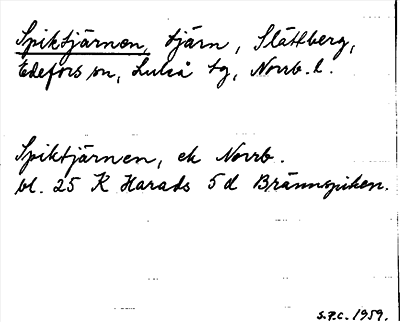 Spiktjärnen, tjärn, Slättberg,
Edefors sn, Luleå tg, Norrb. l.
Spiktjärnen, ek Norrb.
bl. 25 K Harads 5d Brännspiken.
S.P.C. 1959.